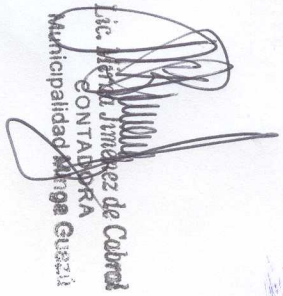 Lic. Mirta Jiménez de Cabral
CONTADORA
Municipalidad Minga Guazú